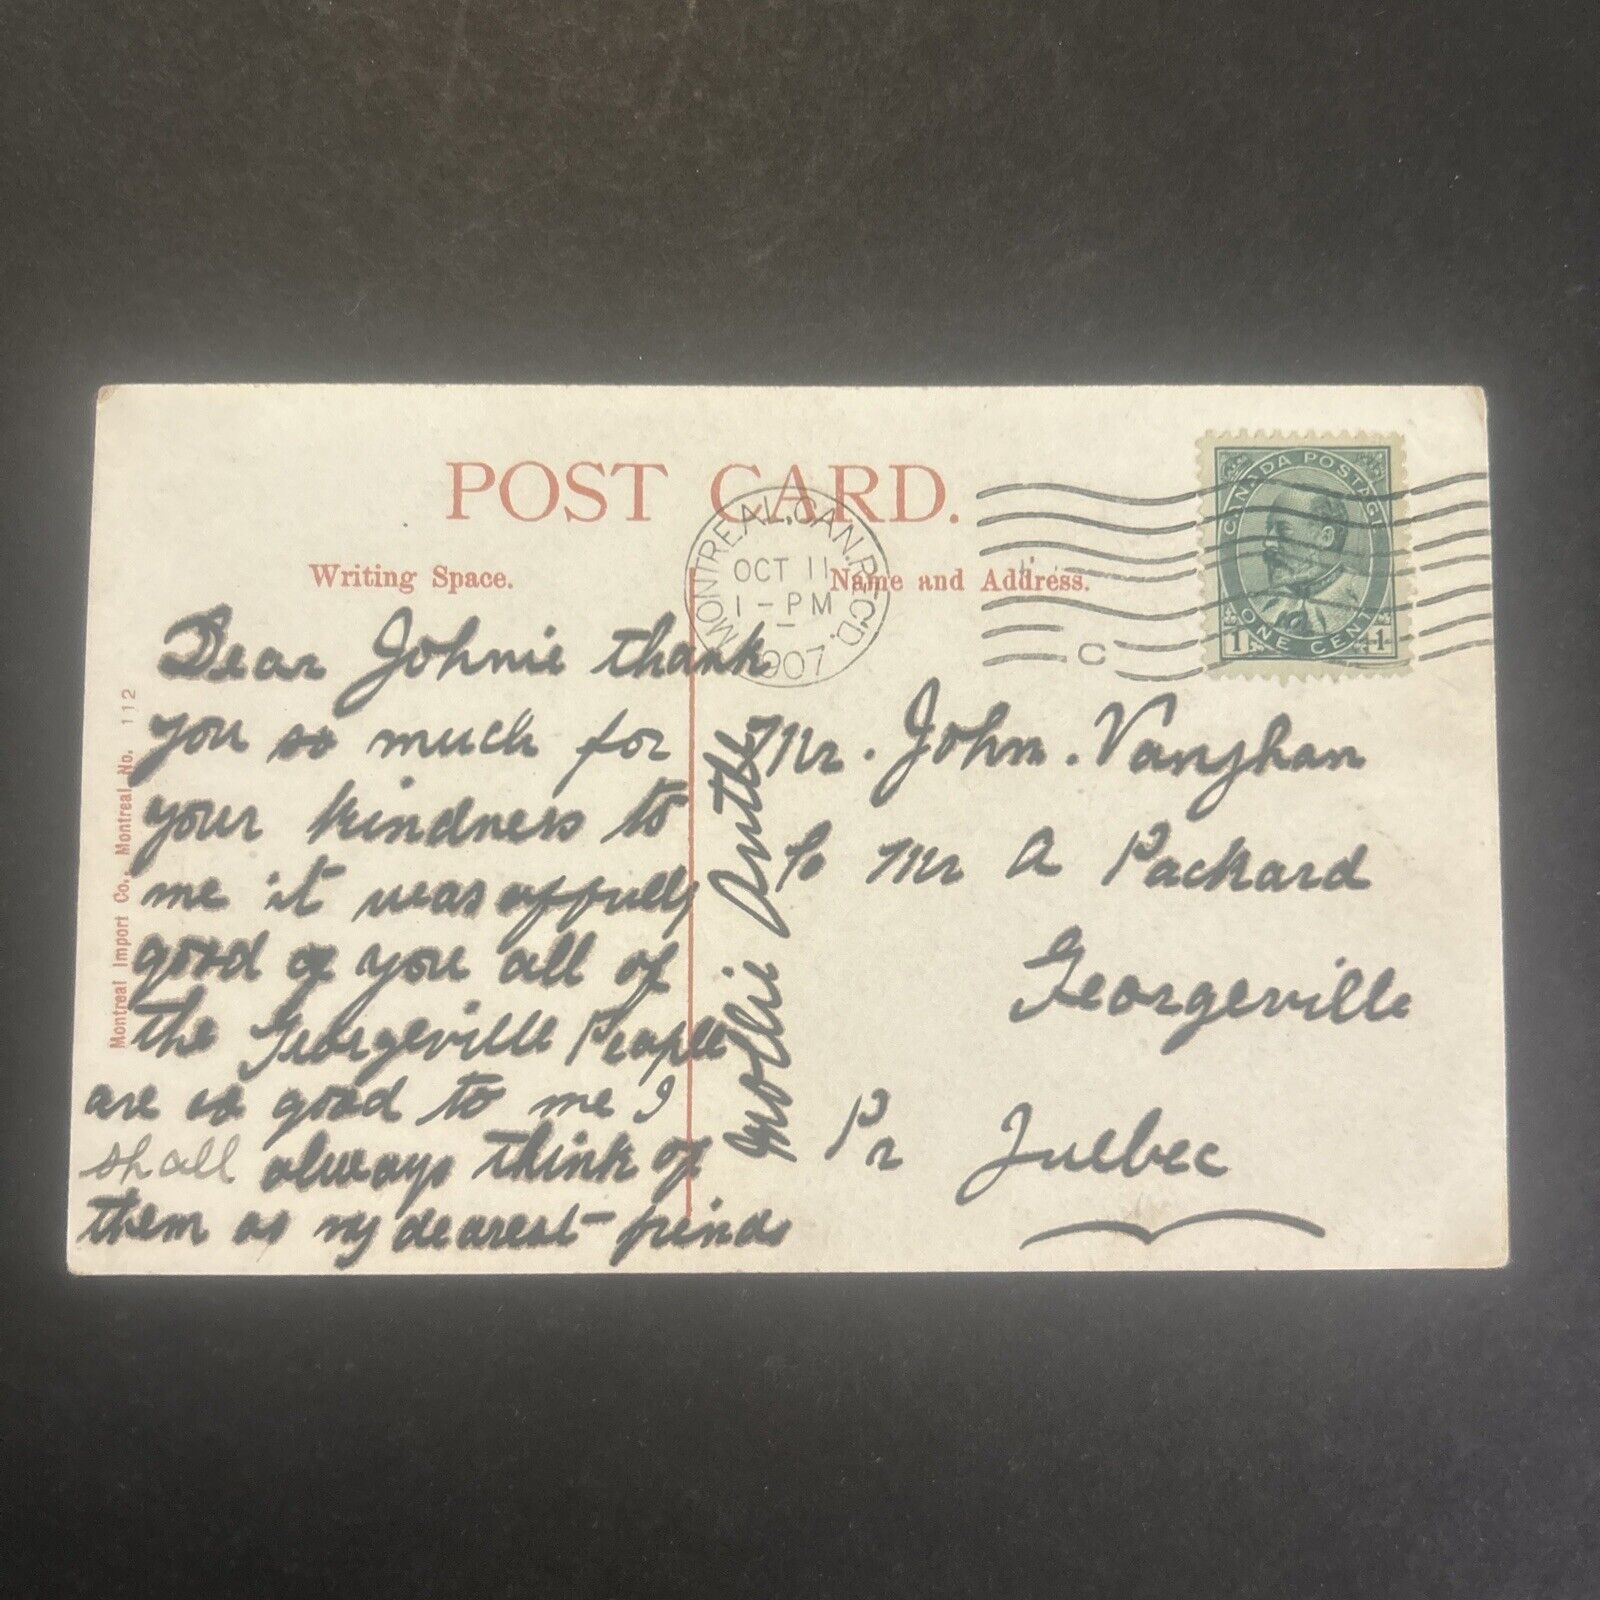 POST CARD.
Writing Space.
Name and Address.
MONTREAL, CAN. REC'D.
OCT 11
1-PM
1907
C
CANADA POSTAGE
1 ONE CENT 1
Dear Johnie thank
you so much for
your kindness to
me it was affully
good of you all of
the Georgeville People
are so good to me I
shall always think of
them as my dearest friends
Mollie
Mr. John. Vaughan
Mr A Packard
Georgeville
Pr Quebec
Montreal Import Co., Montreal No. 112